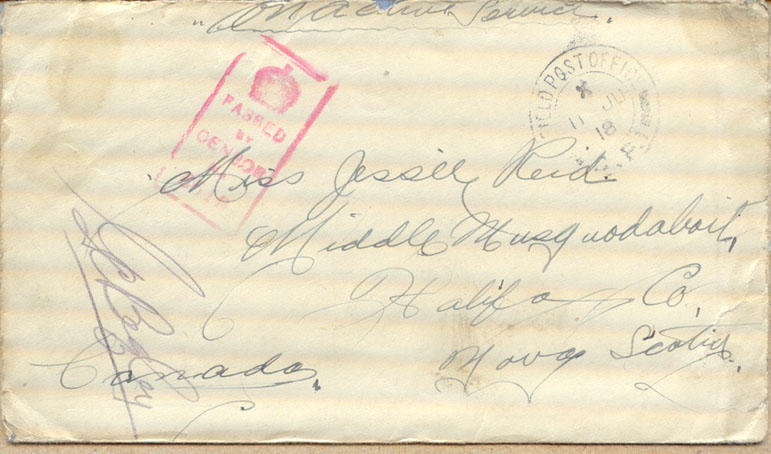 "On Active Service.
PASSED
BY
CENSOR
FIELD POST OFFICE
11 JU
18
Miss Jessie Reid.
Middle Musquodoboit,
Halifax Co,
Nova Scotia.
Canada.